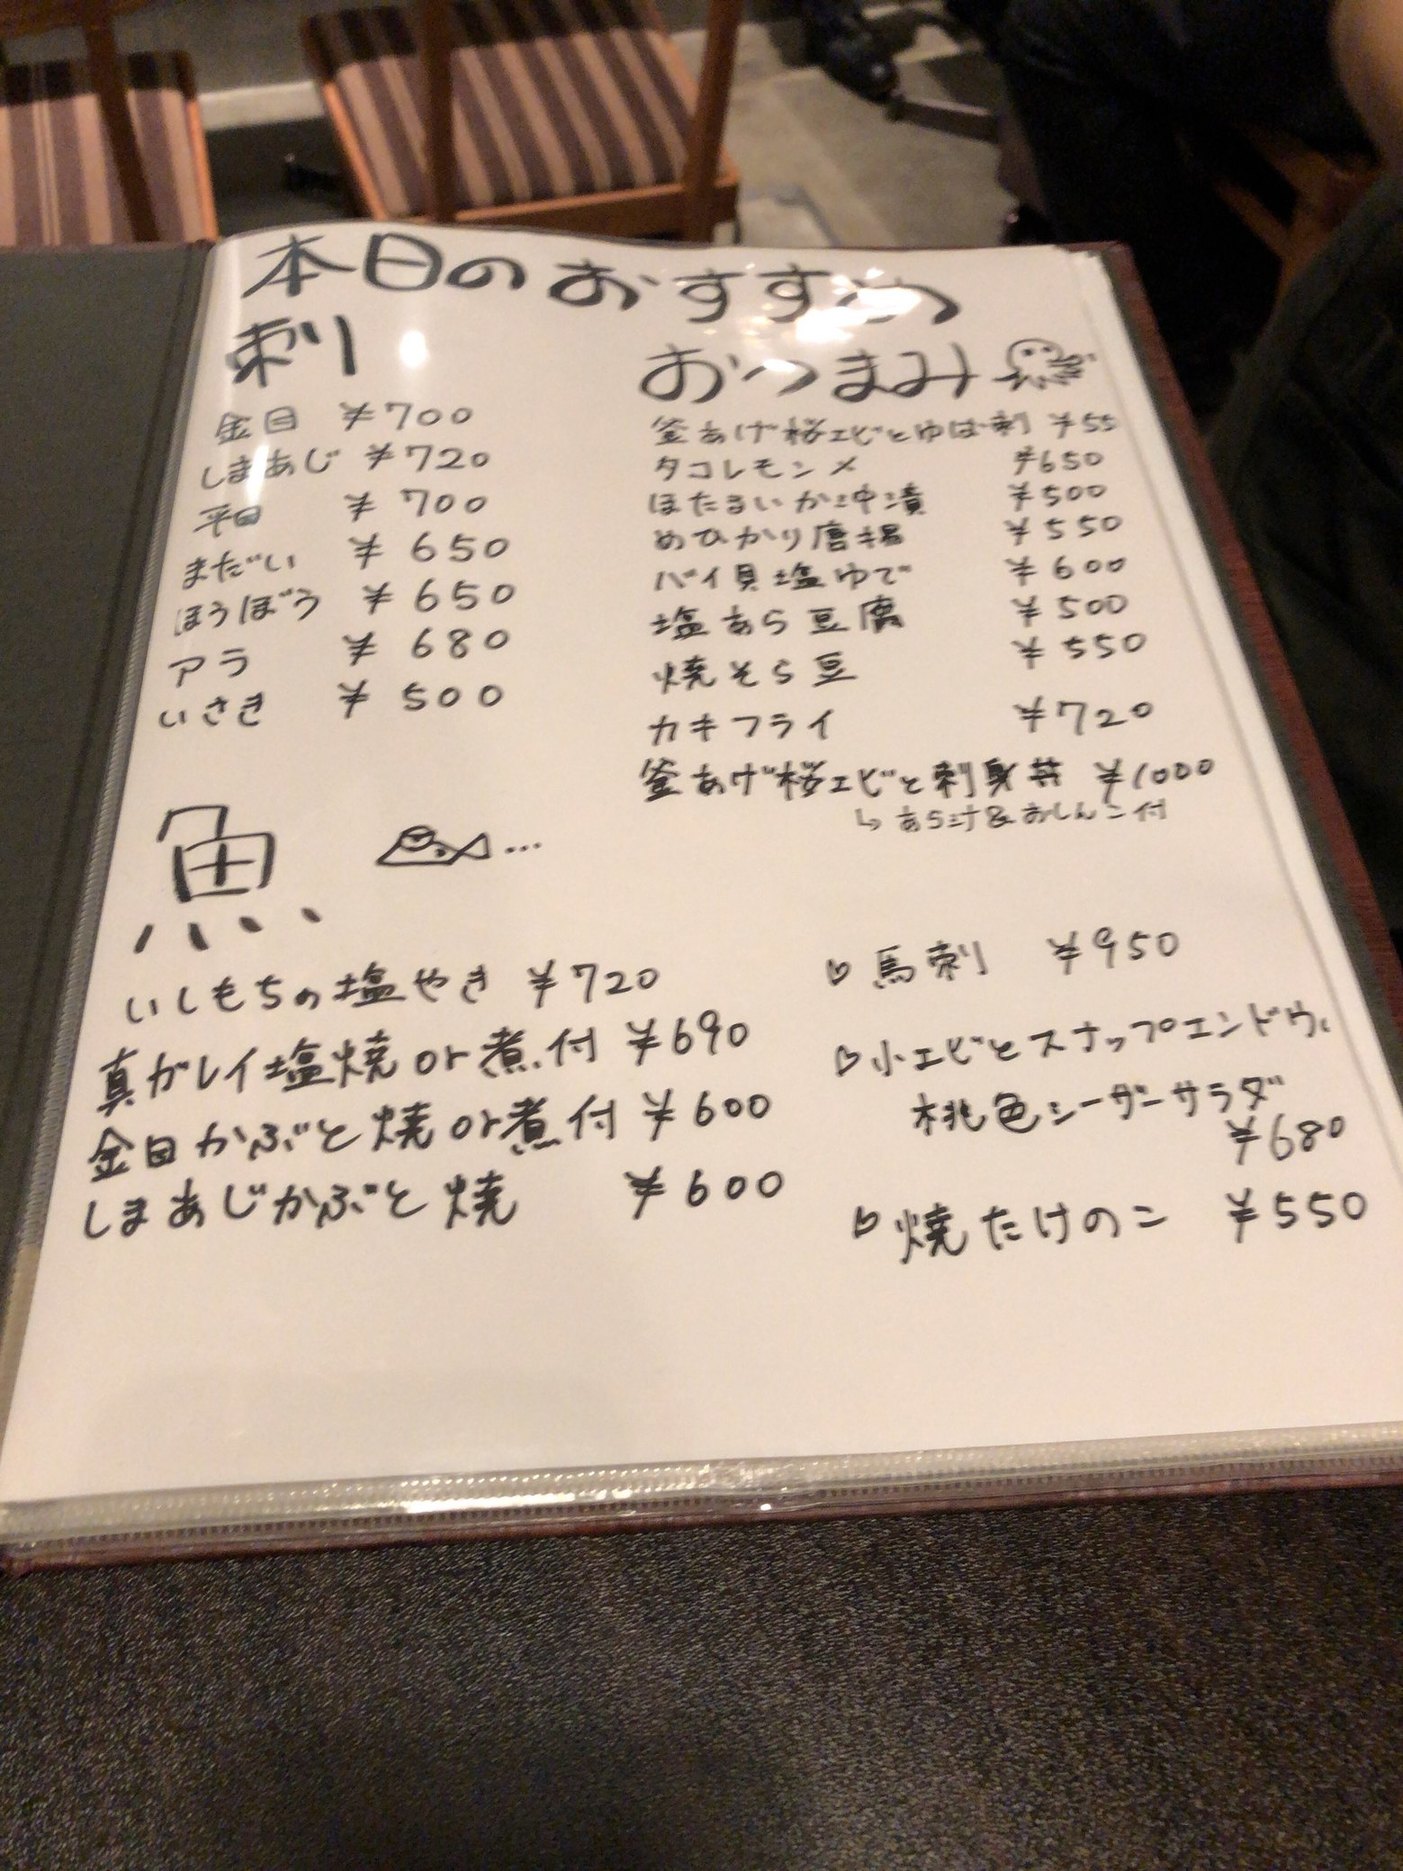 本日のおすすめ
刺
金目 ¥700
しまあじ ¥720
平目 ¥700
まだい ¥650
ほうぼう ¥650
アラ ¥680
いさき ¥500
おつまみ
釜あげ桜エビとゆば刺 ¥55
タコレモン〆 ¥650
ほたるいか沖漬 ¥500
めひかり唐揚 ¥550
バイ貝塩ゆで ¥600
塩あら豆腐 ¥500
焼そら豆 ¥550
カキフライ ¥720
釜あげ桜エビと刺身丼 ¥1000
↳あら汁&おしんこ付
魚 ...
いしもちの塩やき ¥720
真ガレイ塩焼or煮付 ¥690
金目かぶと焼or煮付 ¥600
しまあじかぶと焼 ¥600
♡馬刺 ¥950
♡小エビとスナップエンドウ、
桃色シーザーサラダ
¥680
♡焼たけのこ ¥550